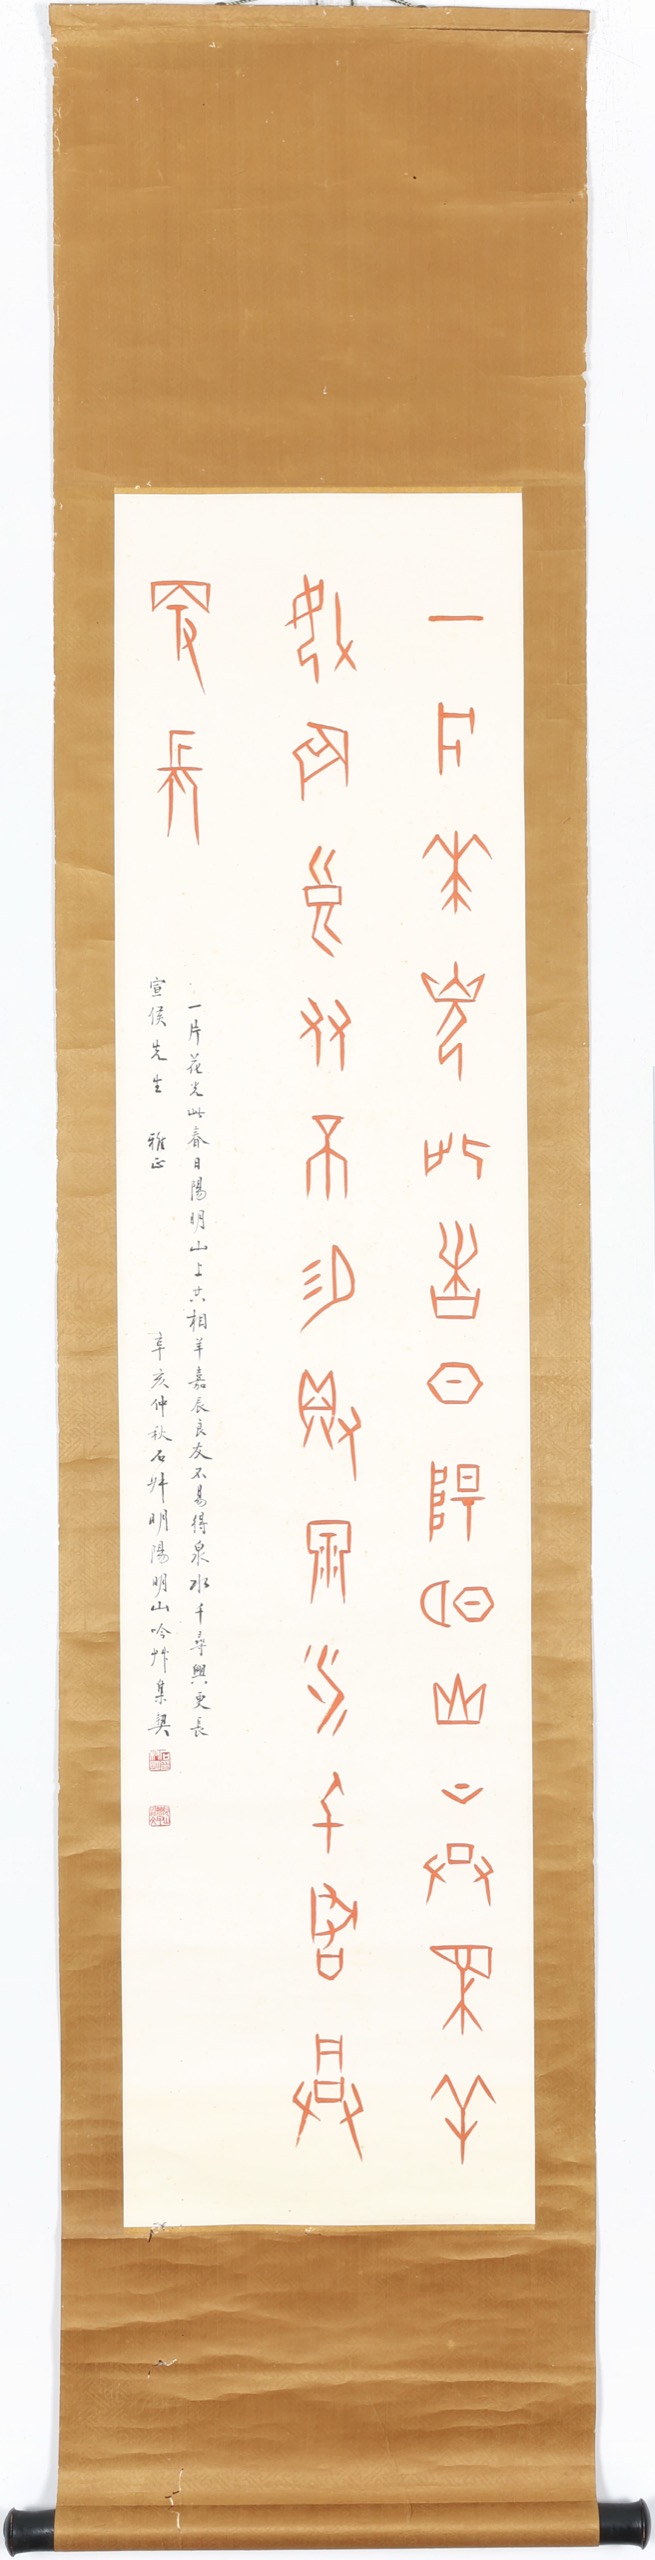 一片花光此春日陽明山上共相羊
嘉辰良友不易得泉水千尋興
更長
一片花光此春日陽明山上共相羊嘉辰良友不易得泉水千尋興更長
宣侯先生 雅正 辛亥仲秋石叔明陽明山吟艸集契